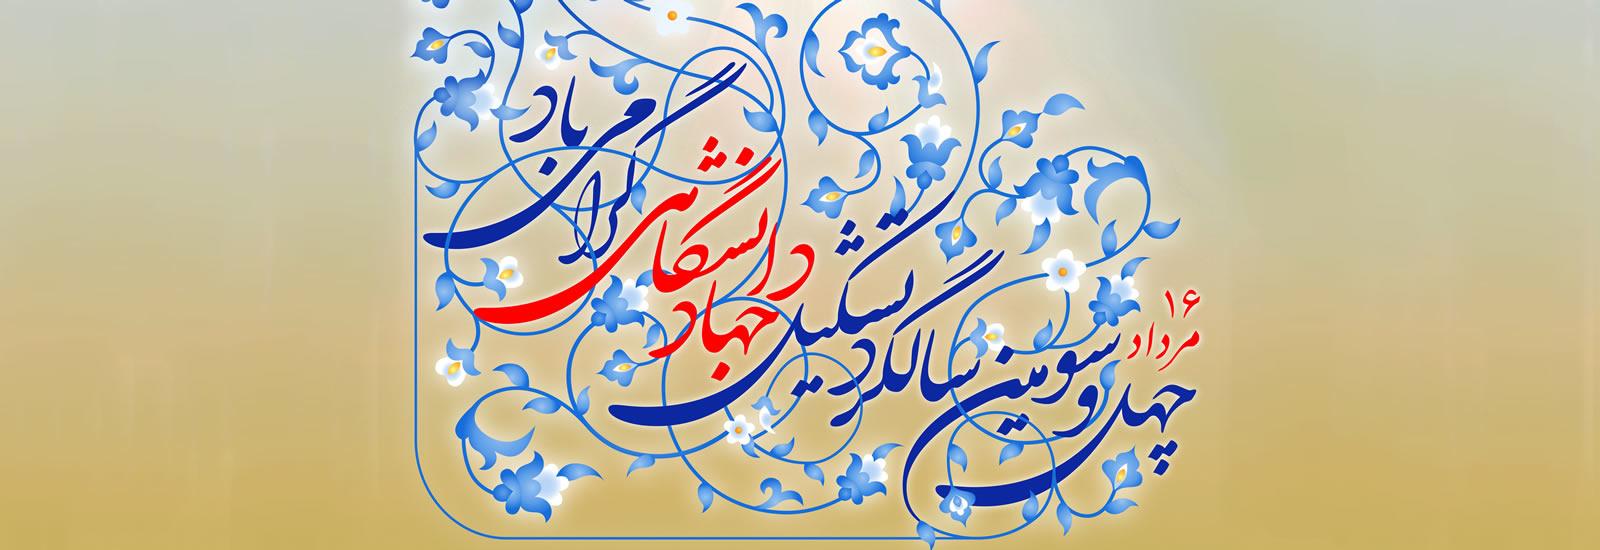 ۱۶
مرداد
چهل و سومین سالگرد تشکیل
جهاد دانشگاهی
گرامی باد